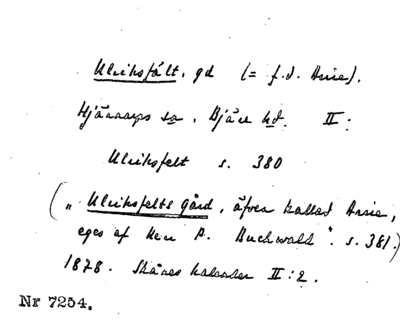 Ulriksfält, gd (= f.d. Arrie).
Hjärnarps sn, Bjäre hd. II:
Ulriksfelt s. 380
(„Ulriksfelts gård, äfven kallad Arrie,
eges af Herr P. Buchwald". s. 381.)
1878. Skånes kalender II:2.
Nr 7254.